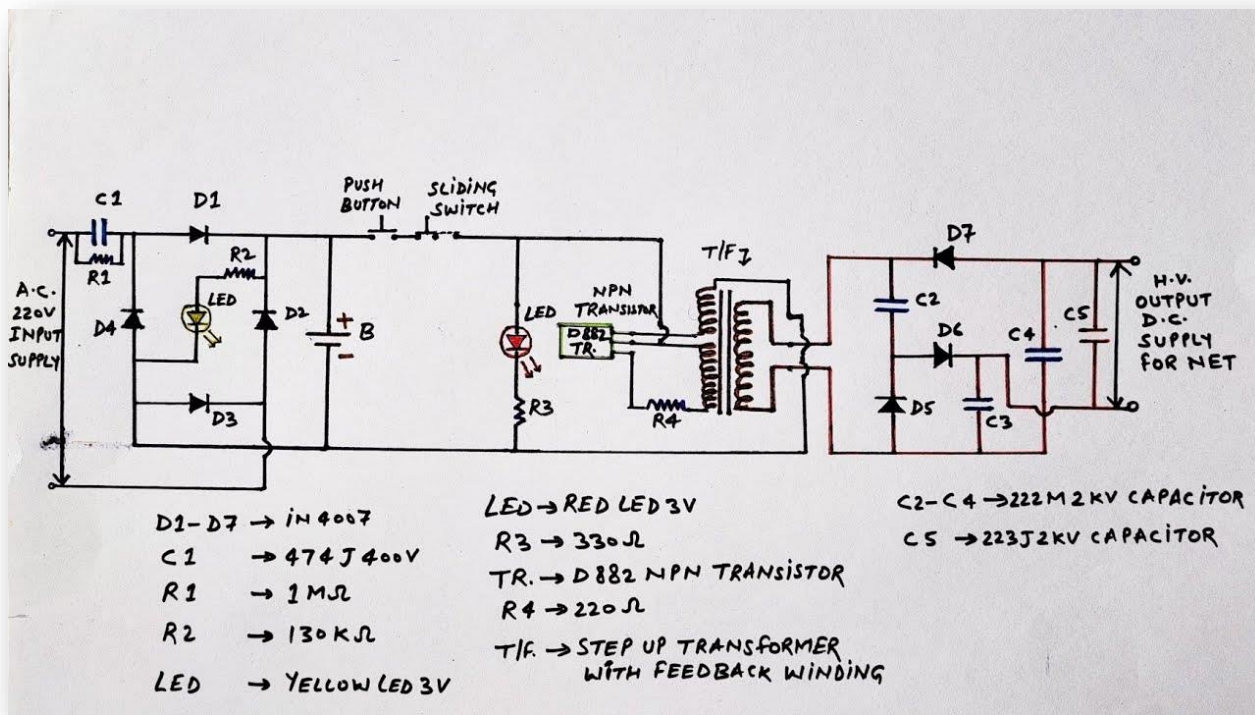 C1
D1
R1
R2
LED
D4
D2
D3
A.C.
220V
INPUT
SUPPLY
+
B
-
PUSH
BUTTON
SLIDING
SWITCH
LED
R3
NPN
TRANSISTOR
D882
TR.
R4
T/F
D7
C2
D6
C4
C5
D5
C3
H.V.
OUTPUT
D.C.
SUPPLY
FOR NET
D1-D7 → iN 4007
C1 → 474 J 400V
R1 → 1 MΩ
R2 → 130 KΩ
LED → YELLOW LED 3V
LED → RED LED 3V
R3 → 330 Ω
TR. → D 882 NPN TRANSISTOR
R4 → 220 Ω
T/F. → STEP UP TRANSFORMER
WITH FEEDBACK WINDING
C2-C4 → 222M 2KV CAPACITOR
C5 → 223J 2KV CAPACITOR